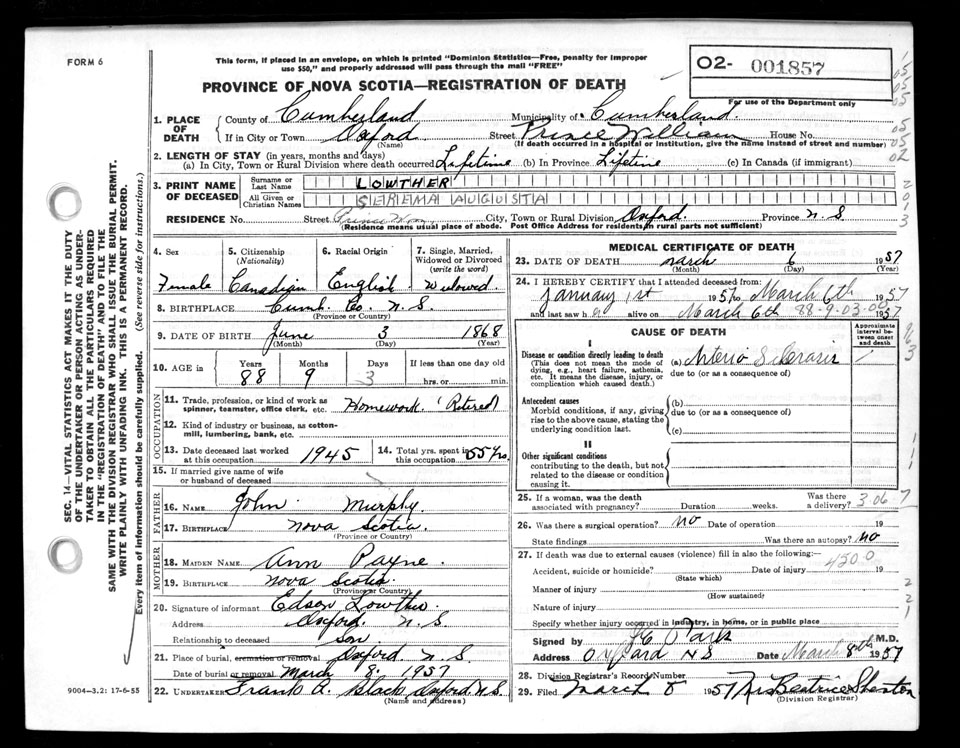 FORM 6
This form, if placed in an envelope, on which is printed "Dominion Statistics—Free, penalty for improper
use $50," and properly addressed will pass through the mail "FREE"
02- 001857
For use of the Department only
PROVINCE OF NOVA SCOTIA—REGISTRATION OF DEATH
1. PLACE OF DEATH County of Cumberland Municipality of Cumberland.
If in City or Town Oxford (Name) Street Prince William House No.
(If death occurred in a hospital or institution, give the name instead of street and number)
2. LENGTH OF STAY (in years, months and days)
(a) In City, Town or Rural Division where death occurred Lifetime (b) In Province Lifetime (c) In Canada (if immigrant)
3. PRINT NAME OF DECEASED Surname or Last Name LOWTHER
All Given or Christian Names SERENA AUGUSTA
RESIDENCE No. Street Prince Wm City, Town or Rural Division Oxford. Province N.S.
(Residence means usual place of abode. Post Office Address for residents in rural parts not sufficient)
4. Sex Female
5. Citizenship (Nationality) Canadian
6. Racial Origin English
7. Single, Married, Widowed or Divorced (write the word) Widowed.
8. BIRTHPLACE Cumb. Co. N.S.
(Province or Country)
9. DATE OF BIRTH June 3 1868
(Month) (Day) (Year)
10. AGE in Years 88 Months 9 Days 3 If less than one day old hrs. or min.
OCCUPATION
11. Trade, profession, or kind of work as spinner, teamster, office clerk, etc. Homework. (Retired)
12. Kind of industry or business, as cotton-mill, lumbering, bank, etc.
13. Date deceased last worked at this occupation 1945
14. Total yrs. spent in this occupation 55 yrs.
15. If married give name of wife or husband of deceased
FATHER
16. Name John Murphy.
17. Birthplace Nova Scotia.
(Province or Country)
MOTHER
18. Maiden Name Ann Payne.
19. Birthplace Nova Scotia.
(Province or Country)
20. Signature of informant Edson Lowther.
Address Oxford. N.S.
Relationship to deceased son.
21. Place of burial, cremation or removal Oxford N.S.
Date of burial or removal March 8. 1957
22. Undertaker Frank A. Black Oxford. N.S.
(Name and address)
MEDICAL CERTIFICATE OF DEATH
23. DATE OF DEATH March 6 1957
(Month) (Day) (Year)
24. I HEREBY CERTIFY that I attended deceased from:
January 1st 1957 to March 6th 1957
and last saw her alive on March 6th 1957
88-9-03-00
CAUSE OF DEATH
Approximate interval between onset and death
I
Disease or condition directly leading to death (a) Arterio Sclerosis
(This does not mean the mode of dying, e.g., heart failure, asthenia, etc. It means the disease, injury, or complication which caused death.)
due to (or as a consequence of)
Antecedent causes (b)
Morbid conditions, if any, giving rise to the above cause, stating the underlying condition last.
due to (or as a consequence of)
(c)
II
Other significant conditions
contributing to the death, but not related to the disease or condition causing it.
25. If a woman, was the death associated with pregnancy? Duration weeks. Was there a delivery? 306
26. Was there a surgical operation? no Date of operation 19
State findings Was there an autopsy? no
27. If death was due to external causes (violence) fill in also the following:
Accident, suicide or homicide? Date of injury 19
450.0
(State which)
Manner of injury
(How sustained)
Nature of injury
Specify whether injury occurred in industry, in home, or in public place
Signed by M.D.
Address Oxford NS Date March 8th 1957
28. Division Registrar's Record Number
29. Filed March 8 1957 Mrs Beatrice
(Division Registrar)
SEC. 14—VITAL STATISTICS ACT MAKES IT THE DUTY
OF THE UNDERTAKER OR PERSON ACTING AS UNDER-
TAKER TO OBTAIN ALL THE PARTICULARS REQUIRED
IN THE "REGISTRATION OF DEATH" AND TO FILE THE
SAME WITH THE DIVISION REGISTRAR WHO SHALL ISSUE THE BURIAL PERMIT.
WRITE PLAINLY WITH UNFADING INK. THIS IS A PERMANENT RECORD.
Every item of information should be carefully supplied. (See reverse side for instructions.)
9004-3.2: 17-6-55